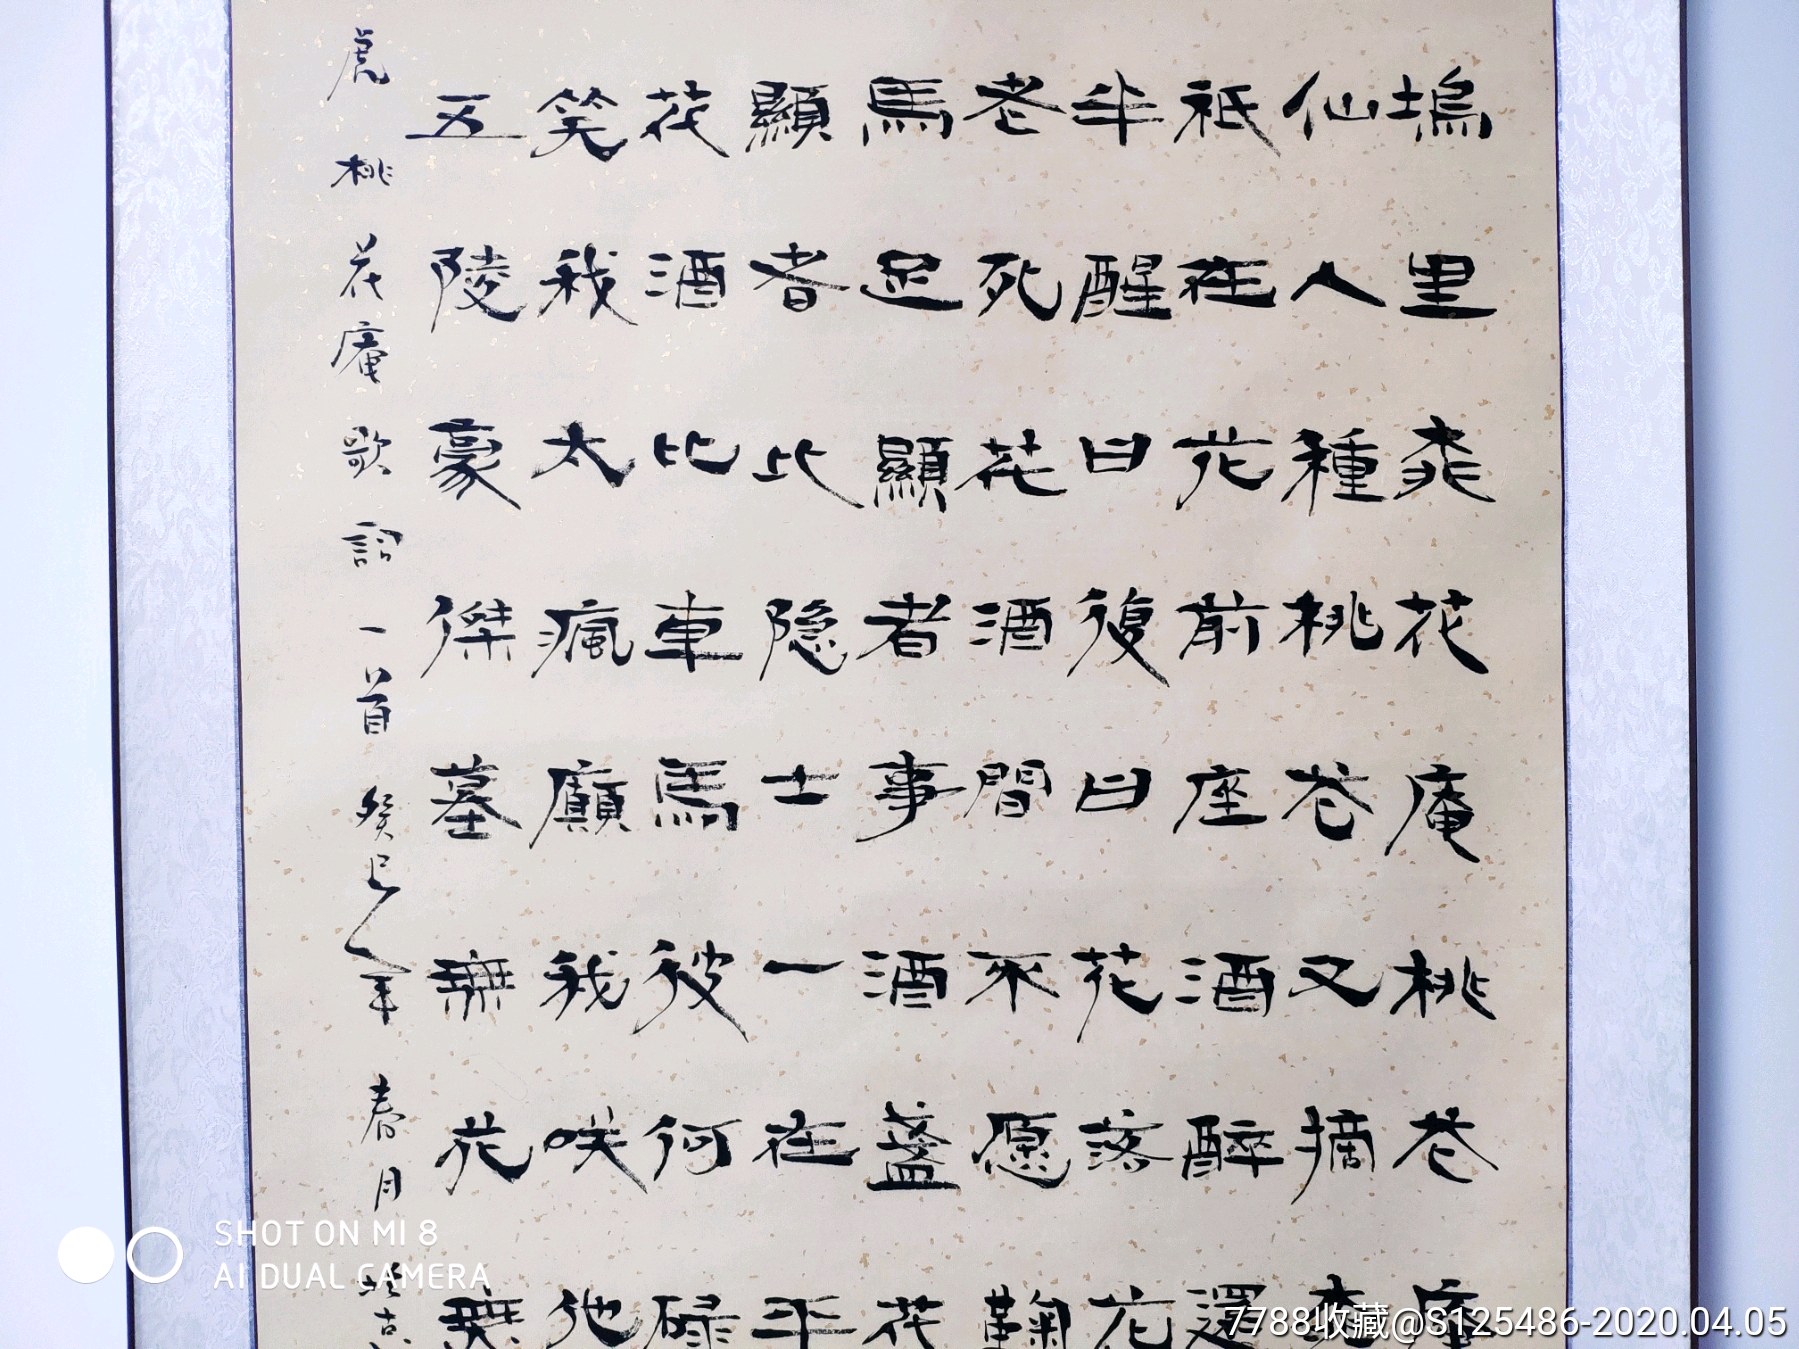 塢里桃花庵桃花庵
仙人種桃花又摘桃
祇在花前座酒醉還
半醒日復日花落花
老死花酒間不愿鞠
馬足顯者事酒盞花
顯者比隐士一在平
花酒比車馬彼何碌
笑我太瘋癲我咲他
五陵豪傑墓無花無
虎桃花庵歌詔一首癸巳年春月
SHOT ON MI 8
AI DUAL CAMERA
7788收藏@S125486-2020.04.05